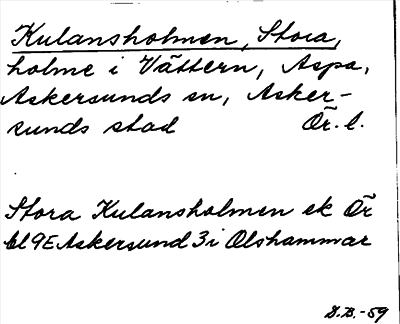 Kulansholmen, Stora,
holme i Vättern, Aspa,
Askersunds sn, Asker-
sunds stad Ör. l.
Stora Kulansholmen ek Ör
bl 9E Askersund 3i Olshammar
D.B.-59